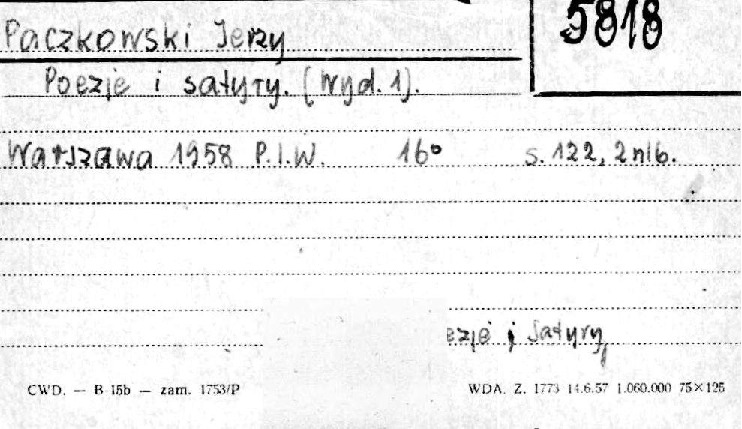 5818
Paczkowski Jerzy
Poezje i satyry. (Wyd. 1).
Warszawa 1958 P.I.W. 16° s. 122, 2 nlb.
i satyry
CWD. — B 15b — zam. 1753/P WDA. Z. 1773 14.6.57 1.060.000 75×125